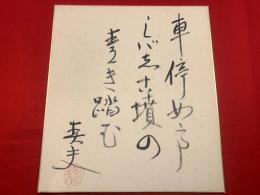 車停め
しばし古墳の
青き踏む
英夫